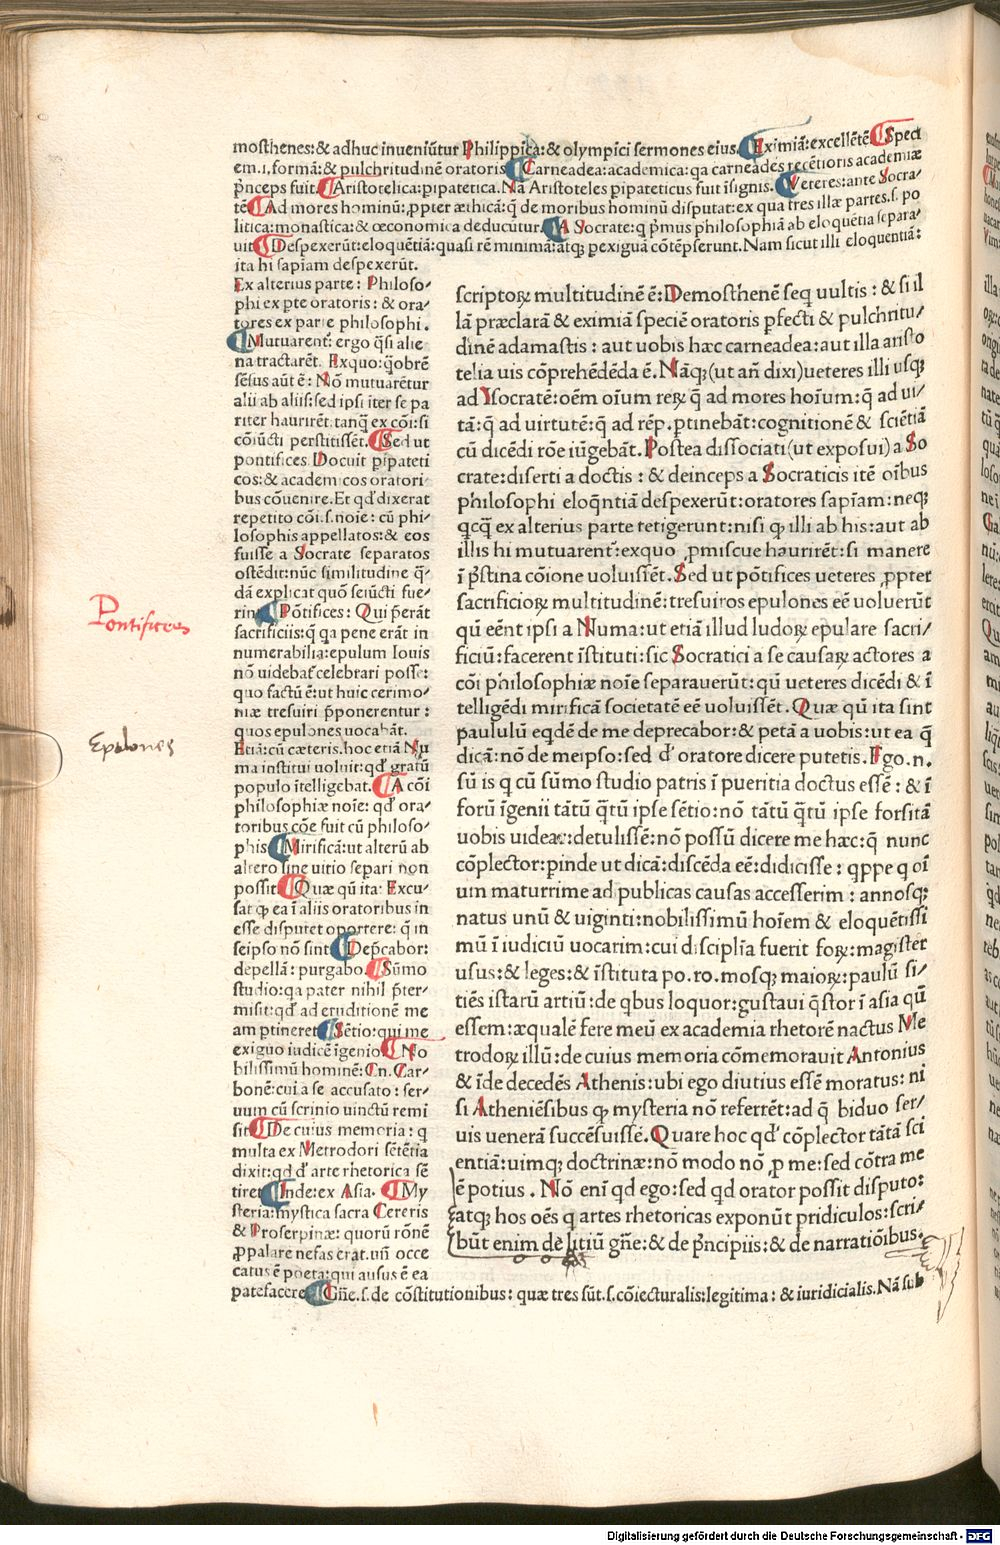 mosthenes:& adhuc inueniūtur Philippica:& olympici sermones eius. Eximiā:excellētē Speci
em.i.formā:& pulchritudinē oratoris Carneadea:academica:qa carneades recētioris academiæ
p̄nceps fuit. Aristotelica:pipatetica. Nā Aristoteles pipateticus fuit īsignis. Veteres:ante Socra-
tē Ad mores hominū:ꝓpter æthicā:q̄ de moribus hominū disputat:ex qua tres illæ partes.s.po
litica:monastica:& œconomica deducūtur. A Socrate:q p̄mus philosophiā ab eloquētia separa-
uit Despexerūt:eloquētiā:quasi rē minimā:atqꝫ pexiguā cōtēpserunt. Nam sicut illi eloquentiā:
ita hi sapiam despexerūt.
Ex alterius parte: Philoso-
phi ex pte oratoris: & ora-
tores ex parte philosophi.
Mutuarent̄: ergo q̄si alie
na tractarēt. Exquo:q̄obrē
sēsus aūt ē: Nō mutuarētur
alii ab aliis:sed ipsi iter se pa
riter haurirēt.tanq̄ ex cōi:si
cōiūcti perstitissēt. Sed ut
pontifices Docuit pipateti
cos:& academicos oratori-
bus cōuenire.Et qd̄ dixerat
repetito cōi.s.noie: cū phi-
losophis appellatos:& eos
fuisse a Socrate separatos
ostēdit:nūc similitudine q̄-
dā explicat quō seiūcti fue-
rint Pōtifices: Qui p̄erāt
sacrificiis:q̄ qa pene erāt in
numerabilia:epulum Iouis
nō uidebat̄ celebrari posse:
quo factū ē:ut huic cerimo-
niæ tresuiri p̄ponerentur:
quos epulones uocabāt.
Etiā:cū cæteris.hoc etiā Nu
ma institui uoluit:qd̄ gratū
populo itelligebat. A cōi
philosophiæ noie: qd̄ ora-
toribus cōe fuit cū philoso-
phis Mirificā:ut alterū ab
altero sine uitio separi non
possit Quæ qū ita: Excu-
sat ꝙ ea ī aliis oratoribus in
esse disputet oportere: q̄ in
seipso nō sint Dep̄cabor:
depellā: purgabo. Sūmo
studio:qa pater nihil p̄ter-
misit:qd̄ ad eruditionē me
am ptineret Sētio:qui me
exiguo iudicē igenio No
bilissimū hominē: Cn. Car-
bonē:cui a se accusato: ser-
uum cū scrinio uinctū remi
sit De cuius memoria: q
multa ex Metrodori sētētia
dixit:qd d' arte rhetorica sē
tiret Inde:ex Asia. My
steria:mystica sacra Cereris
& Proserpinæ: quorū rōnē
ꝓpalare nefas erat.un̄ occe
catus ē poeta:qui ausus ē ea
patefacere Gn̄e.s.de cōstitutionibus: quæ tres sūt.s.cōiecturalis:legitima: & iuridicialis.Nā sub
scriptoꝝ multitudinē ē: Demosthenē seq uultis: & si il
lā præclarā & eximiā speciē oratoris pfecti & pulchritu-
dinē adamastis: aut uobis hæc carneadea:aut illa aristo
telia uis cōprehēdēda ē. Nāqꝫ(ut an̄ dixi)ueteres illi usqꝫ
ad Isocratē:oēm oīum reꝝ q̄ ad mores hoīum:q̄ ad ui-
tā:q̄ ad uirtutē:q̄ ad rēp.ptinebāt:cognitionē & sciētiā
cū dicēdi rōe iūgebāt. Postea dissociati(ut exposui)a So
crate:diserti a doctis: & deinceps a Socraticis itē oībus
philosophi eloqntiā despexerūt:oratores sapīam:neqꝫ
qcq̄ ex alterius parte tetigerunt:nisi ꝙ illi ab his:aut ab
illis hi mutuarent̄:exquo ꝓmiscue haurirēt:si manere
ī p̄stina cōione uoluissēt. Sed ut pōtifices ueteres ꝓpter
sacrificioꝝ multitudinē:tresuiros epulones eē uoluerūt
qū eēnt ipsi a Numa:ut etiā illud ludoꝝ epulare sacri-
ficiū:facerent īstituti:sic Socratici a se causaꝝ actores a
cōi philosophiæ noīe separauerūt:qū ueteres dicēdi & ī
telligēdi mirificā societatē eē uoluissēt. Quæ qū ita sint
paululū eqdē de me deprecabor:& petā a uobis:ut ea q̄
dicā:nō de meipso:sed d' oratore dicere putetis. Ego.n.
sū is q cū sūmo studio patris ī pueritia doctus essē: & ī
forū īgenii tātū q̄tū ipse sētio:nō tātū q̄tū ipse forsitā
uobis uidear:detulissē:nō possū dicere me hæc:q̄ nunc
cōplector:pinde ut dicā:discēda eē:didicisse: qppe q oī
um maturrime ad publicas causas accesserim: annosqꝫ
natus unū & uiginti:nobilissimū hoīem & eloquētissi
mū ī iudiciū uocarim:cui disciplīa fuerit foꝝ:magister
usus:& leges:& īstituta po.ro.mosqꝫ maioꝝ:paulū si-
tiēs istarū artiū:de qbus loquor:gustaui q̄stor ī asia qū
essem:æqualē fere meū ex academia rhetorē nactus Me
trodoꝝ illū:de cuius memoria cōmemorauit Antonius
& īde decedēs Athenis:ubi ego diutius essē moratus: ni
si Atheniēsibus ꝙ mysteria nō referrēt:ad q̄ biduo ser-
uis uenerā succēsuissē. Quare hoc qd' cōplector tātā sci
entiā:uimqꝫ doctrinæ:nō modo nō ꝓ me:sed cōtra me
ē potius. Nō enī qd ego:sed qd orator possit disputo:
atqꝫ hos oēs q artes rhetoricas exponūt pridiculos:scri-
būt enim de litiū gn̄e:& de p̄ncipiis:& de narratiōibus.
Pontifices
Epulones
Digitalisierung gefördert durch die Deutsche Forschungsgemeinschaft - DFG